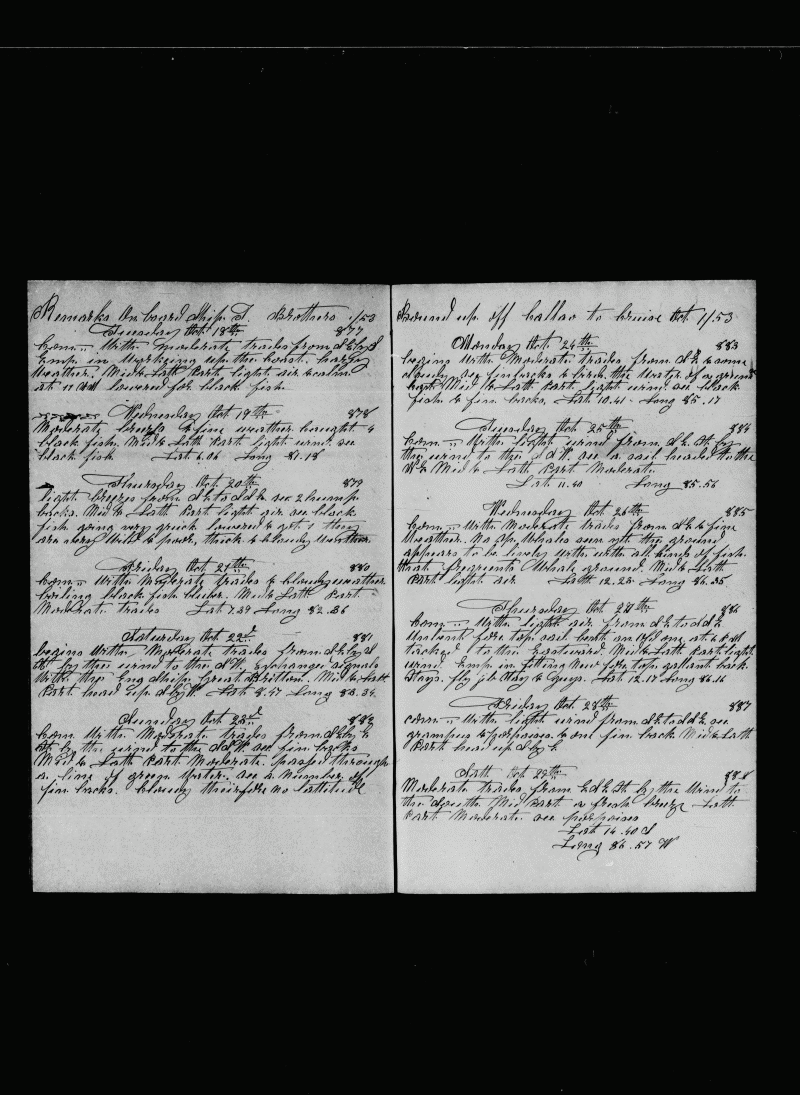 Remarks On board Ship T. Brothers 1/53
Tuesday Oct 18th 877
Com - With moderate trades from S E by S
Emp in working up the coast. hazy
Weather. Mid & Latt Part light air & calm
at 11 AM lowered for black fish
Wednesday Oct 19th 878
Moderate breeze & fine weather caught 4
black fish. Mid & Latt Part light wind. see
black fish Lat 6.06 Long 81.18
Thursday Oct 20th 879
light breezes from S E to S S E see 2 hump
backs. Mid & Latt Part light air. see black
fish going very quick lowered & got 1 they
are very wild & poor, thick & cloudy weather
Friday Oct 21th 880
Com - With Moderate trades & cloudy weather
boiling black fish bluber. Mid & Latt Part
Moderate trades Lat 7.39 Long 82.36
Saturday Oct 22d 881
begins With Moderate trades from S E by S
St by the wind to the S W. Exchanges signals
With the Eng Ship Great Brittom. Mid & Latt
Part head up S by W. Lat 8.47 Long 83.34
Sunday Oct 23d 882
Com With Moderate trades from S E by E
St by the wind to the S S W. see fin backs
Mid & Latt Part Moderate. passed through
a line of green Water. see a number of
fin backs. cloudy therefore no lattitude
Bound up off Callao to cruise Oct 1/53
Monday Oct 24th 883
begins With Moderate trades from S E & some
cloudy see finbacks & birds. the Water of a green
Mid & Latt Part light wind. see black
fish & fin backs. Lat 10.41 Long 85.17
Tuesday Oct 25th 884
Com - With light wind from S E. St by
the wind to the S S W. see a sail headed to the
Mid & Latt Part Moderate
Lat 11.40 Long 85.56
Wednesday Oct 26th 885
Com - With Moderate trades from S E & fine
Weather. No Sp Whales seen yet the ground
appears to be lively with with all kinds of fish
that frequents Whale ground. Mid & Latt
Part light air Latt 12.25 Long 86.35
Thursday Oct 27th 886
Com - With light air from S E to S S E
Unbent fore top sail bent an Old one at 6 P M
tacked to the Eastward Mid & Latt Part light
wind Emp in fitting New fore top gallant back
Stays. fly jib Stay & Guys. Lat 12.17 Long 86.16
Friday Oct 28th 887
Com - With light wind from S E to S S E see
grampus & porpoises & one fin back Mid & Latt
Part head up S by E
Satt Oct 29th 888
Moderate trades from E S E St by the Wind to
the South Mid Part a fresh breeze Latt
Part Moderate see porpoises
Lat 14.40 S
Long 86.57 W